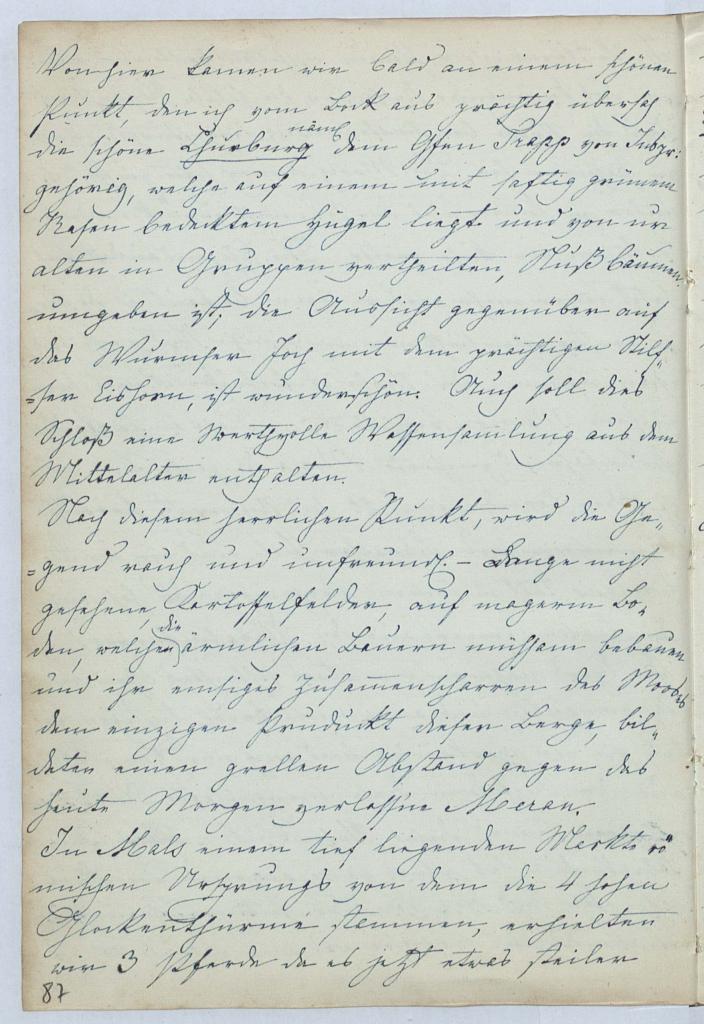 Von hier kamen wir bald an einem schönen
Punkt, den ich vom Bock aus prächtig übersah
die schöne Churburg näml dem Gfen Trapp von Inspr:
gehörig, welche auf einem mit saftig grünem
Rasen bedecktem Hügel liegt und von ur
alten in Gruppen vertheilten, Nußbäumen
umgeben ist; die Aussicht gegenüber auf
das Wurmser Joch mit dem prächtigen Stilf„
=ser Eishorn, ist wunderschön. Auch soll dies
Schloß eine werthvolle Waffensamlung aus dem
Mittelalter enthalten.
Nach diesem herrlichen Punkt, wird die Ge„
=gend rauh und unfreundl. – Lange nicht
gesehene, Kartoffelfelder, auf magerm Bo„
den, welchen die ärmlichen Bauern mühsam bebauen
und ihr emsiges Zusammenscharren des Mooses
dem einzigen Pruduckt dieser Berge, bil„
deten einen grellen Abstand gegen das
heute Morgen verlassne Meran.
In Mals einem tief liegenden Markte rö
mischen Ursprungs von dem die 4 hohen
Glockenthürme stammen, erhielten
wir 3 Pferde da es jetzt etwas steiler
87